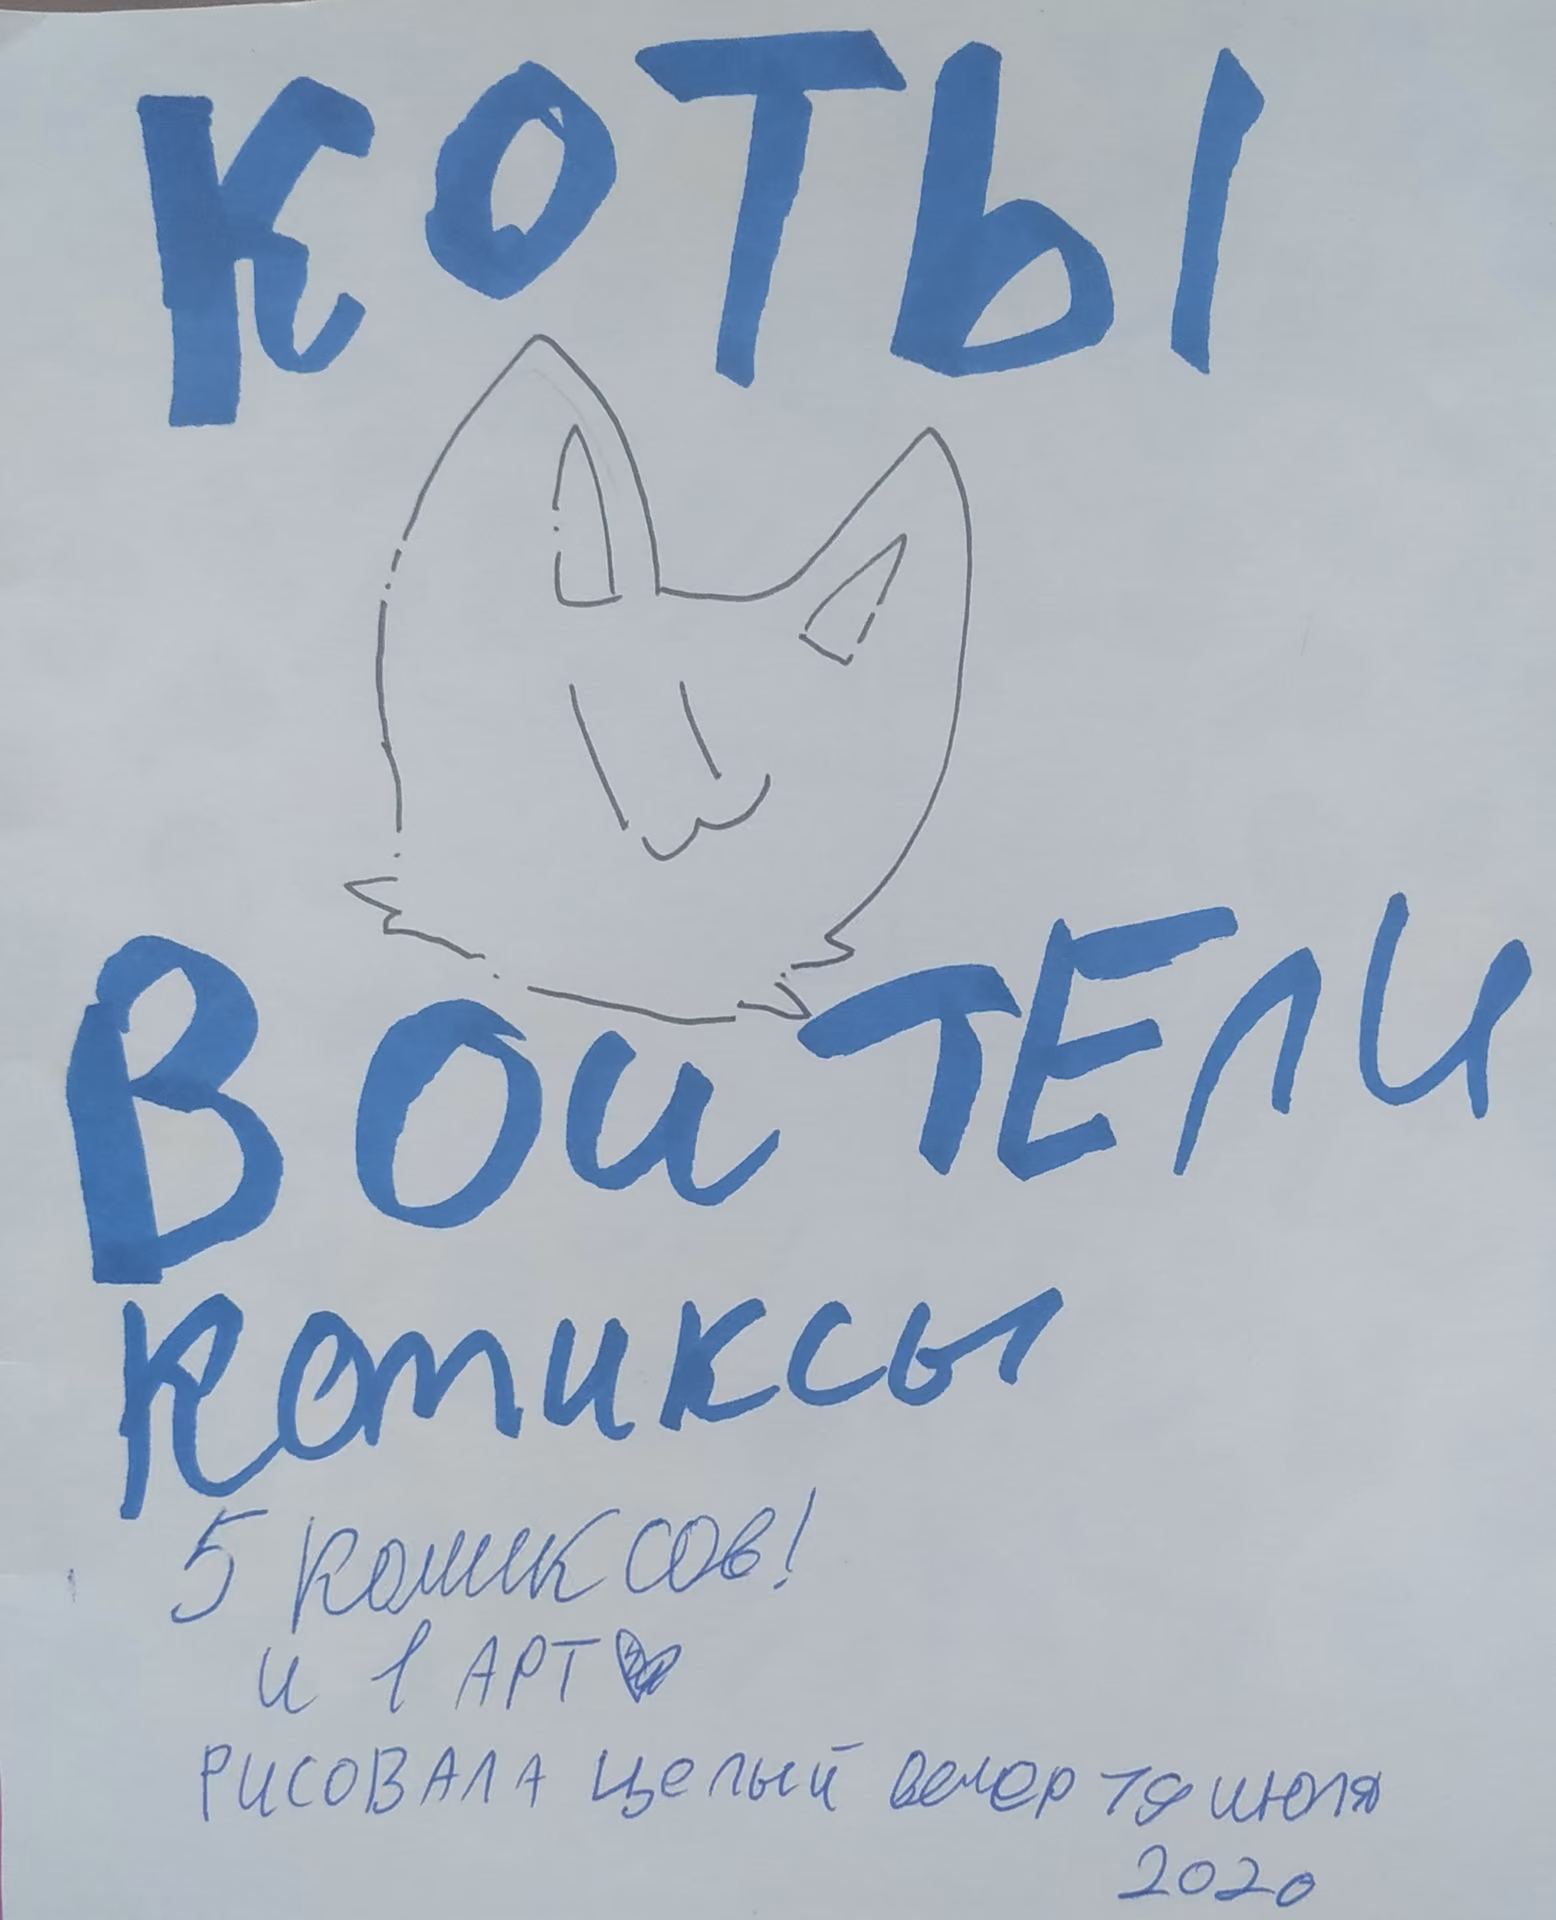 КОТЫ
ВОИТЕЛИ
Комиксы
5 комиксов!
и 1 АРТ
РИСОВАЛА целый вечер 19 июля
2020